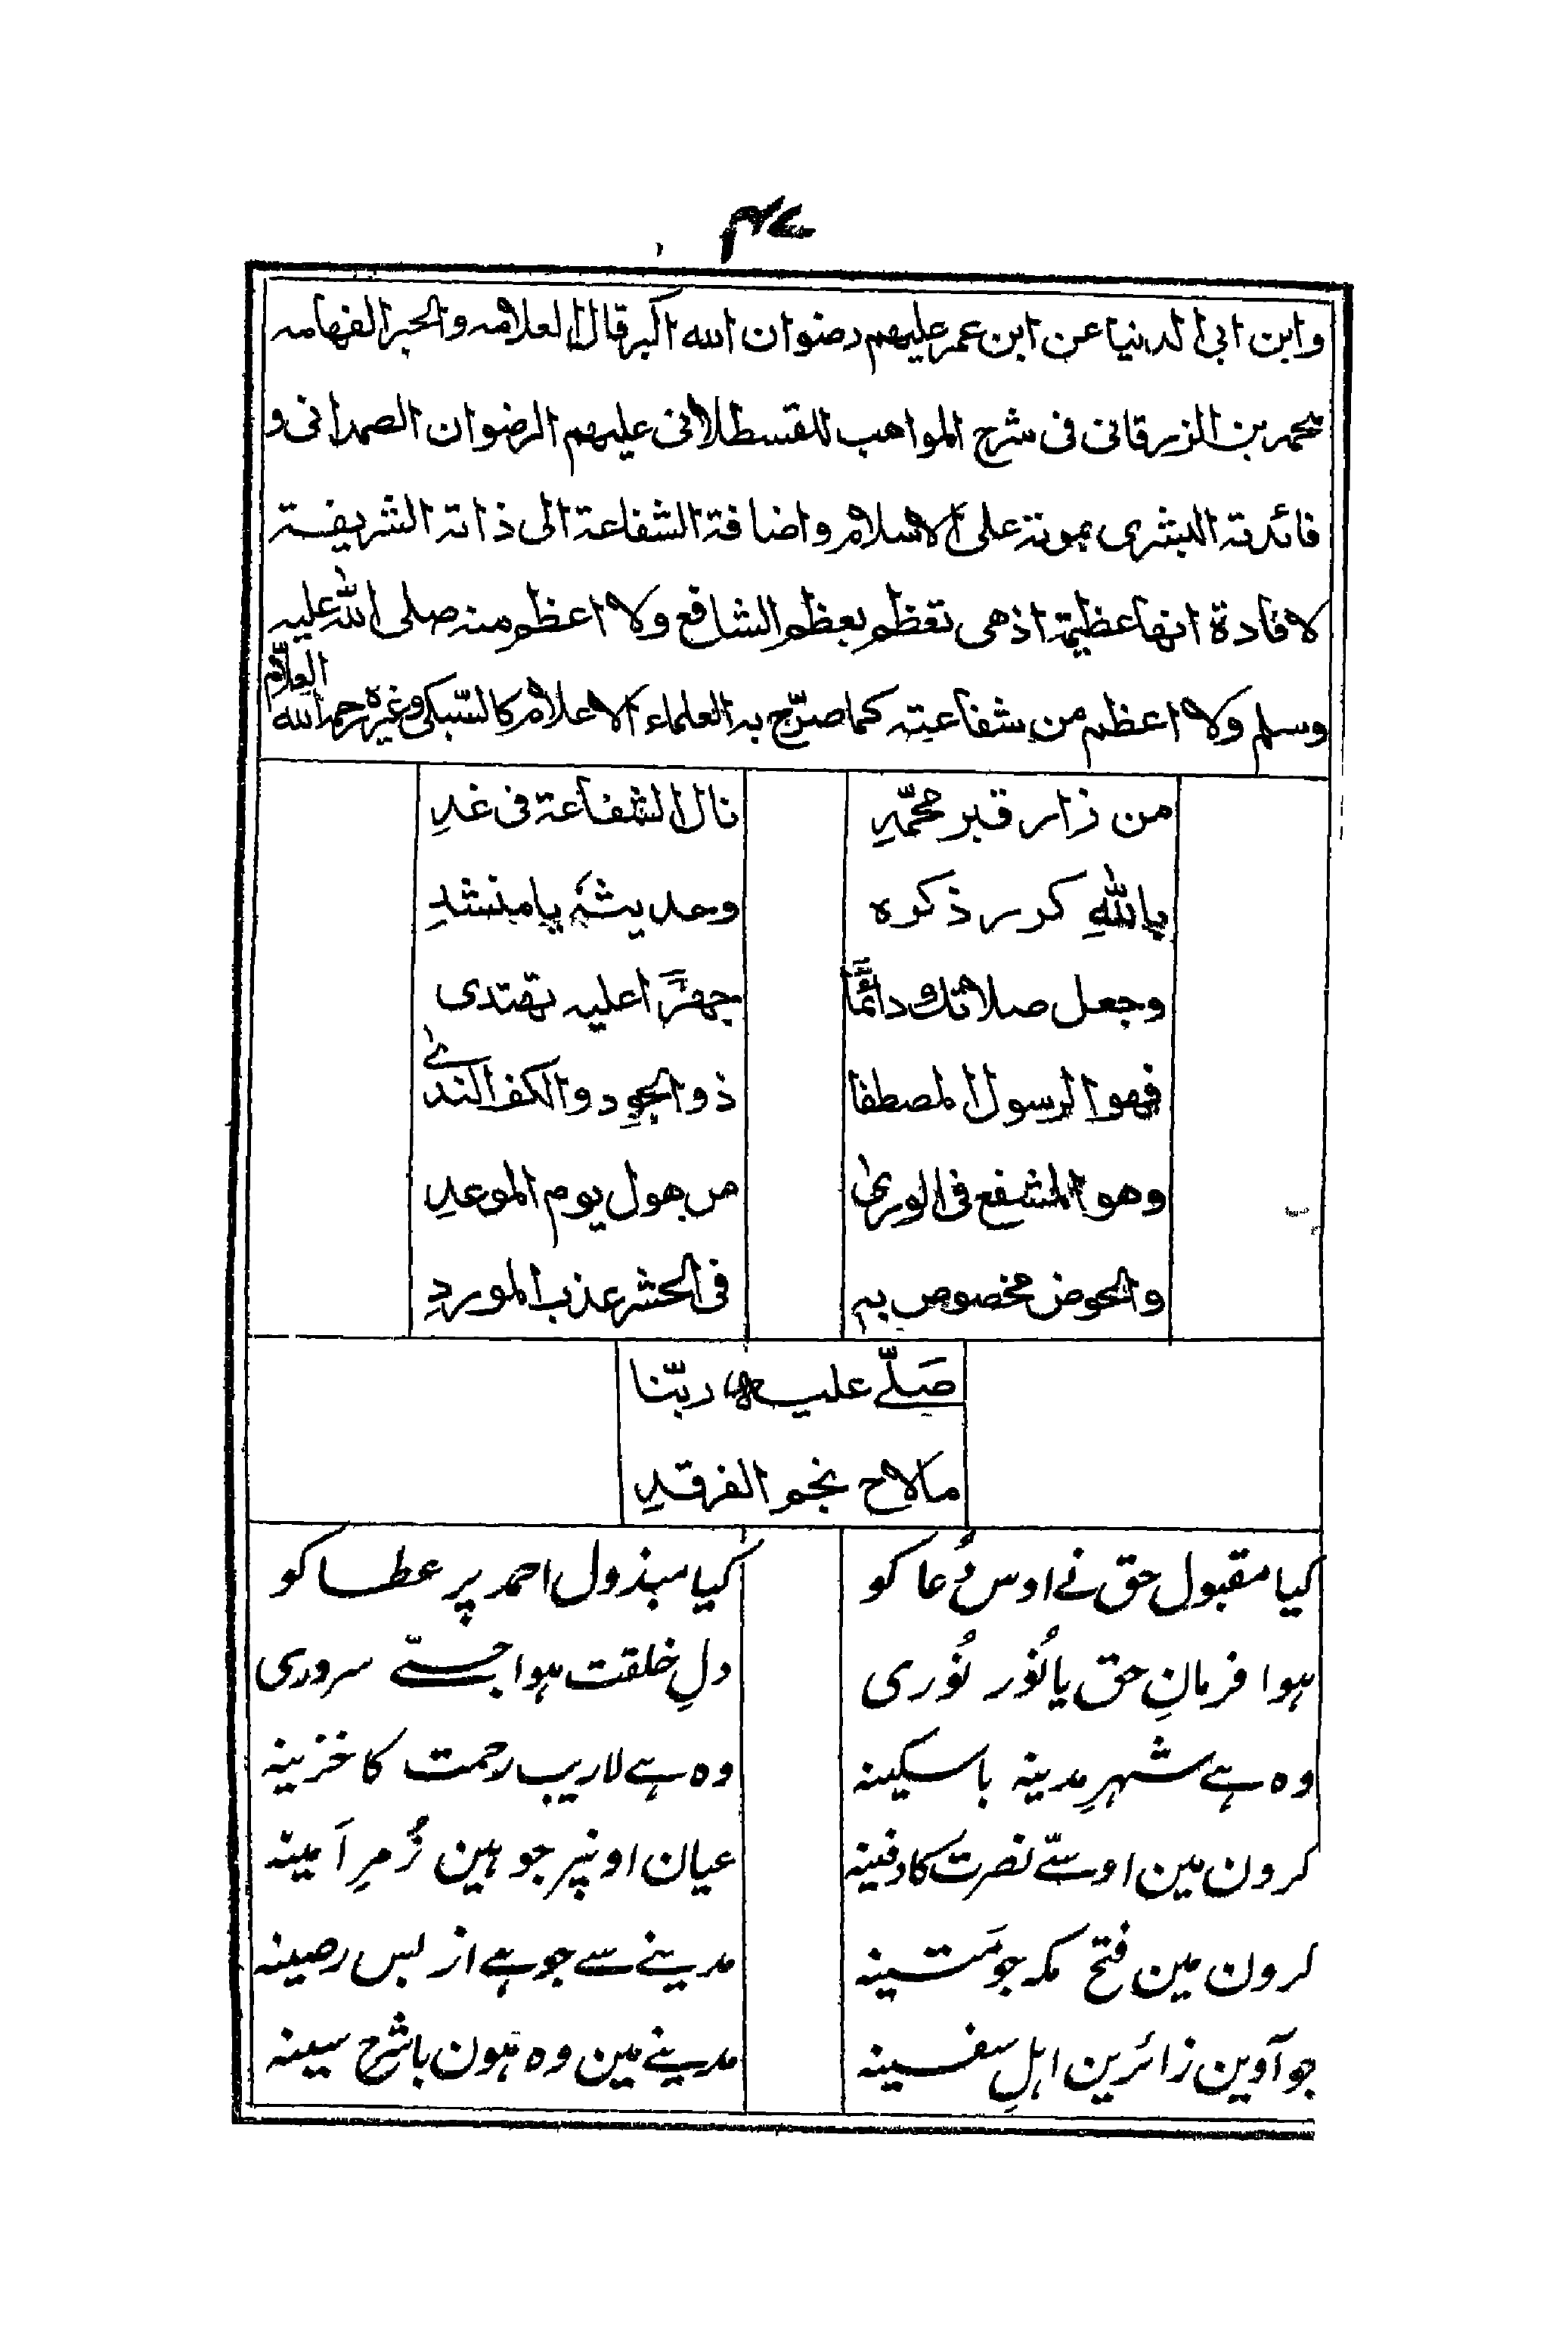 ۴۷
وابن ابی الدنیا عن ابن عمر علیهم رضوان الله اکبر قال العلامه والحبر الفهامه
محمد بن الزرقانی فی شرح المواهب للقسطلانی علیهم الرضوان الصمدانی و
فائدته البشری بموته علی الاسلام واضافة الشفاعة الی ذاته الشریفة
لافادة انها عظیمة اذ هی تعظم بعظم الشافع ولا اعظم منه صلی الله علیه
وسلم ولا اعظم من شفاعته کما صرّح به العلماء الاعلام کالسّبکی وغیره رحمه الله العلّام
من زار قبر محمّدِ نال الشفاعة فی غدِ
باللهِ کرر ذکره وحدیثهٗ یا منشدِ
وجعل صلاتك دائمًا جهرًا علیه تهتدی
فهو الرسول المصطفا ذو الجود والکف الندی
وهو المشفع فی الوریٰ من هول یوم الموعدِ
والحوض مخصوص به فی الحشر عذب الموردِ
صَلّے علیه ربّنا
مالاح نجم الفرقدِ
کیا مقبول حق نے اوس دُعا کو کیا مبذول احمد پر عطا کو
ہوا فرمانِ حق یا نُور نُوری دلِ خلقت ہوا جسّے سروری
وہ ہے شہرِ مدینہ باسکینہ وہ ہے لاریب رحمت کا خزینہ
کرون مین اوسّے نصرت کا دفینہ عیان اونپر جو ہین زُمرِ اَمینہ
کرون مین فتح مکہ جو مَتینہ مدینے سے جو ہے از بس رصینہ
جو آوین زائرین اہلِ سفینہ مدینے مین وہ ہون باشرح سینہ